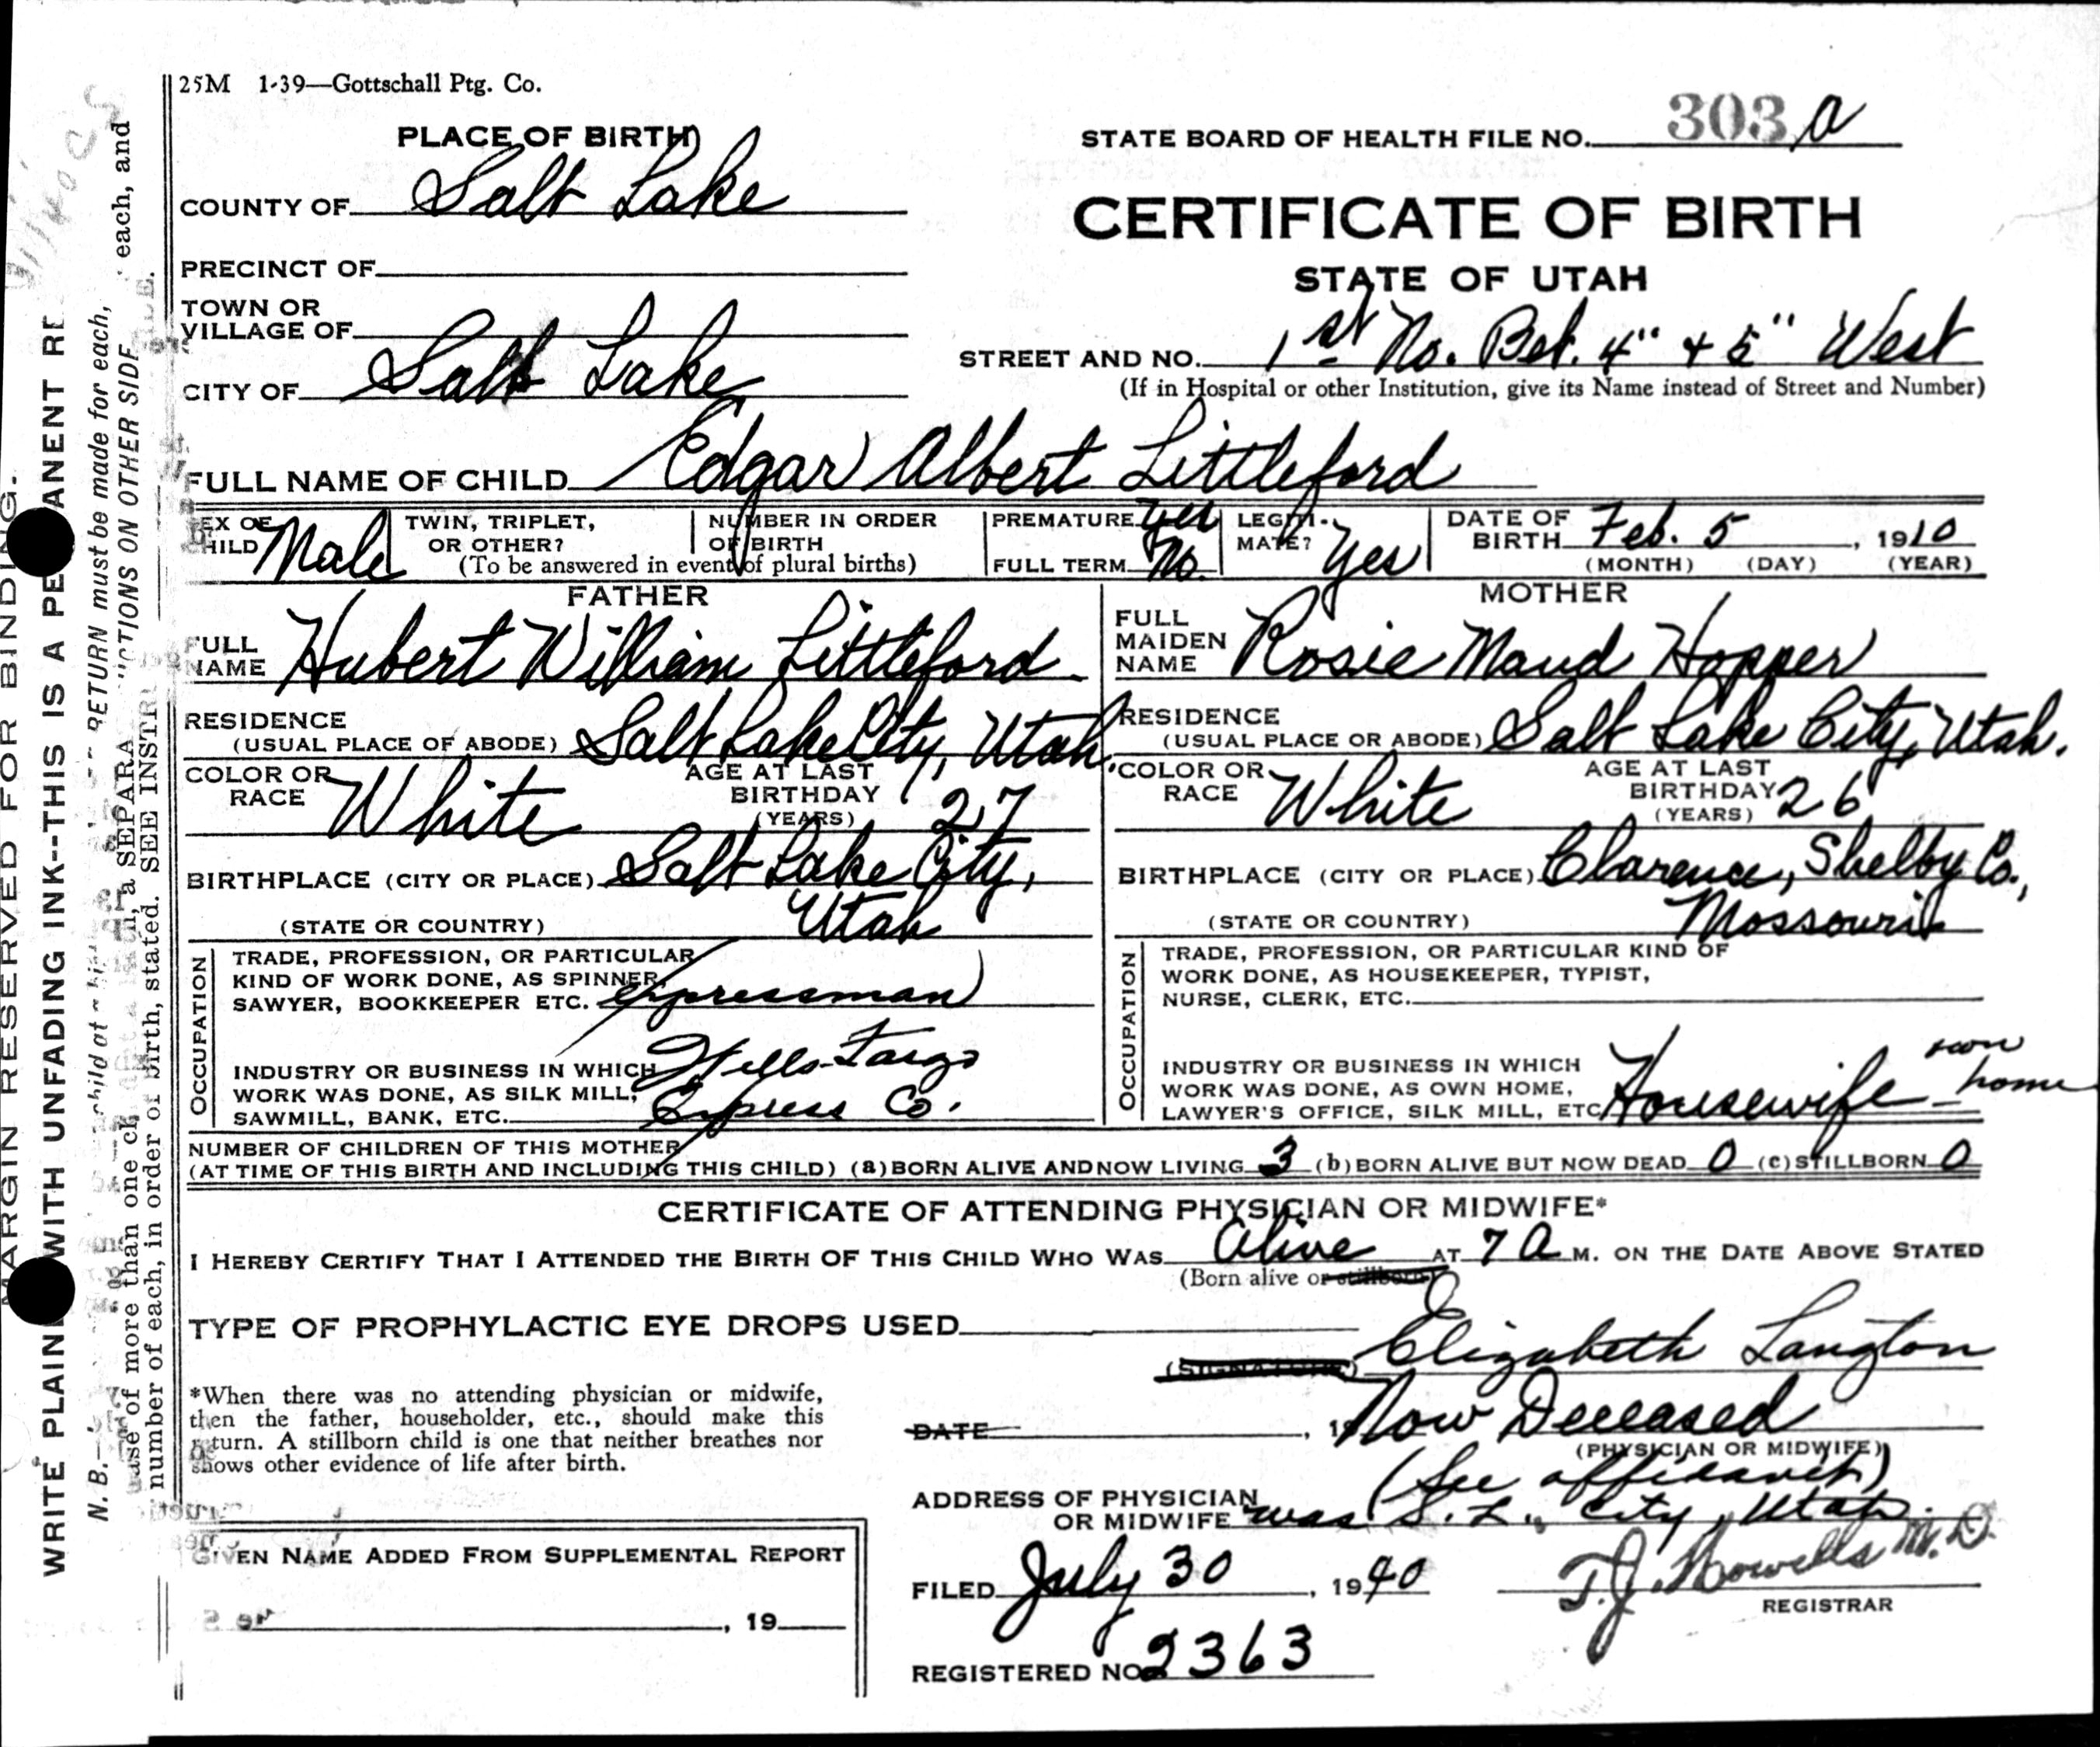 25M 1-39—Gottschall Ptg. Co.
STATE BOARD OF HEALTH FILE NO. 303 a
PLACE OF BIRTH
COUNTY OF Salt Lake
CERTIFICATE OF BIRTH
PRECINCT OF
STATE OF UTAH
TOWN OR
VILLAGE OF
STREET AND NO. 1st No. Bet. 4" + 5" West
(If in Hospital or other Institution, give its Name instead of Street and Number)
CITY OF Salt Lake
FULL NAME OF CHILD Edgar Albert Littleford
SEX OF CHILD Male
TWIN, TRIPLET, OR OTHER?
NUMBER IN ORDER OF BIRTH
(To be answered in event of plural births)
PREMATURE Yes
FULL TERM No.
LEGITI-MATE? Yes
DATE OF BIRTH Feb. 5, 1910
(MONTH) (DAY) (YEAR)
FATHER
FULL NAME Hubert William Littleford
RESIDENCE
(USUAL PLACE OF ABODE) Salt Lake City, Utah.
COLOR OR RACE White
AGE AT LAST BIRTHDAY (YEARS) 27
BIRTHPLACE (CITY OR PLACE) Salt Lake City,
(STATE OR COUNTRY) Utah
OCCUPATION
TRADE, PROFESSION, OR PARTICULAR
KIND OF WORK DONE, AS SPINNER,
SAWYER, BOOKKEEPER ETC. expressman
INDUSTRY OR BUSINESS IN WHICH
WORK WAS DONE, AS SILK MILL,
SAWMILL, BANK, ETC. Wells-Fargo
Express Co.
MOTHER
FULL MAIDEN NAME Rosie Maud Hopper
RESIDENCE
(USUAL PLACE OR ABODE) Salt Lake City, Utah.
COLOR OR RACE White
AGE AT LAST BIRTHDAY (YEARS) 26
BIRTHPLACE (CITY OR PLACE) Clarence, Shelby Co.,
(STATE OR COUNTRY) Mossouri
OCCUPATION
TRADE, PROFESSION, OR PARTICULAR KIND OF
WORK DONE, AS HOUSEKEEPER, TYPIST,
NURSE, CLERK, ETC.
INDUSTRY OR BUSINESS IN WHICH
WORK WAS DONE, AS OWN HOME,
LAWYER'S OFFICE, SILK MILL, ETC Housewife - own home
NUMBER OF CHILDREN OF THIS MOTHER
(AT TIME OF THIS BIRTH AND INCLUDING THIS CHILD) (a) BORN ALIVE AND NOW LIVING 3 (b) BORN ALIVE BUT NOW DEAD 0 (c) STILLBORN 0
CERTIFICATE OF ATTENDING PHYSICIAN OR MIDWIFE*
I HEREBY CERTIFY THAT I ATTENDED THE BIRTH OF THIS CHILD WHO WAS Alive AT 7 A M. ON THE DATE ABOVE STATED
(Born alive or stillborn)
TYPE OF PROPHYLACTIC EYE DROPS USED
(SIGNATURE) Elizabeth Langton
DATE , 1 Now Deceased
(PHYSICIAN OR MIDWIFE)
(See affidavit)
ADDRESS OF PHYSICIAN
OR MIDWIFE was S. L., City, Utah.
*When there was no attending physician or midwife,
then the father, householder, etc., should make this
return. A stillborn child is one that neither breathes nor
shows other evidence of life after birth.
GIVEN NAME ADDED FROM SUPPLEMENTAL REPORT
, 19
FILED July 30, 1940
T.J. Howells M.D.
REGISTRAR
REGISTERED NO. 2363
MARGIN RESERVED FOR BINDING.
WRITE PLAIN WITH UNFADING INK--THIS IS A PE ANENT RE
N. B.— child at RETURN must be made for each, each, and
of more than one ch , a SEPARA "CTIONS ON OTHER SIDE
number of each, in order of birth, stated. SEE INSTR